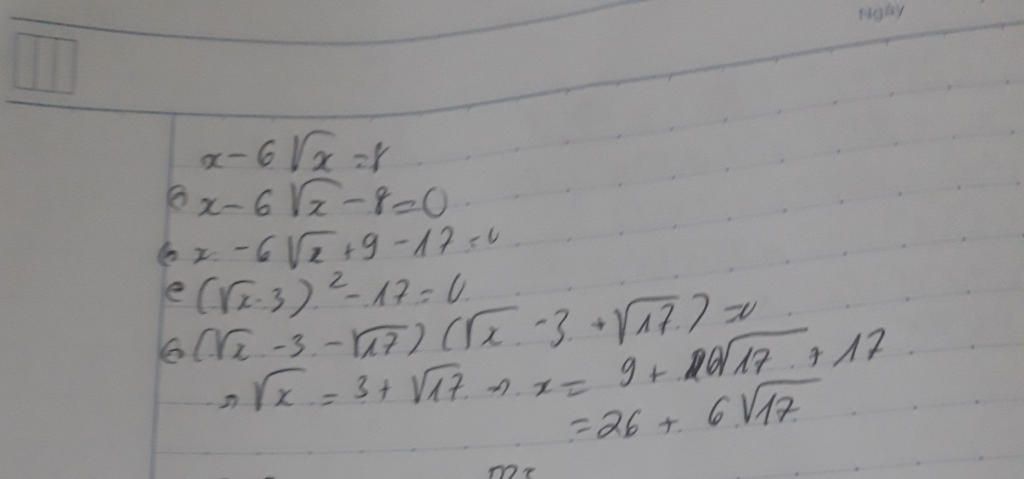 Ngày
x - 6√x = 8
⇔ x - 6√x - 8 = 0
⇔ x - 6√x + 9 - 17 = 0
⇔ (√x - 3)² - 17 = 0
⇔ (√x - 3 - √17) (√x - 3 + √17) = 0
⇒ √x = 3 + √17 ⇒ x = 9 + 6√17 + 17
= 26 + 6√17